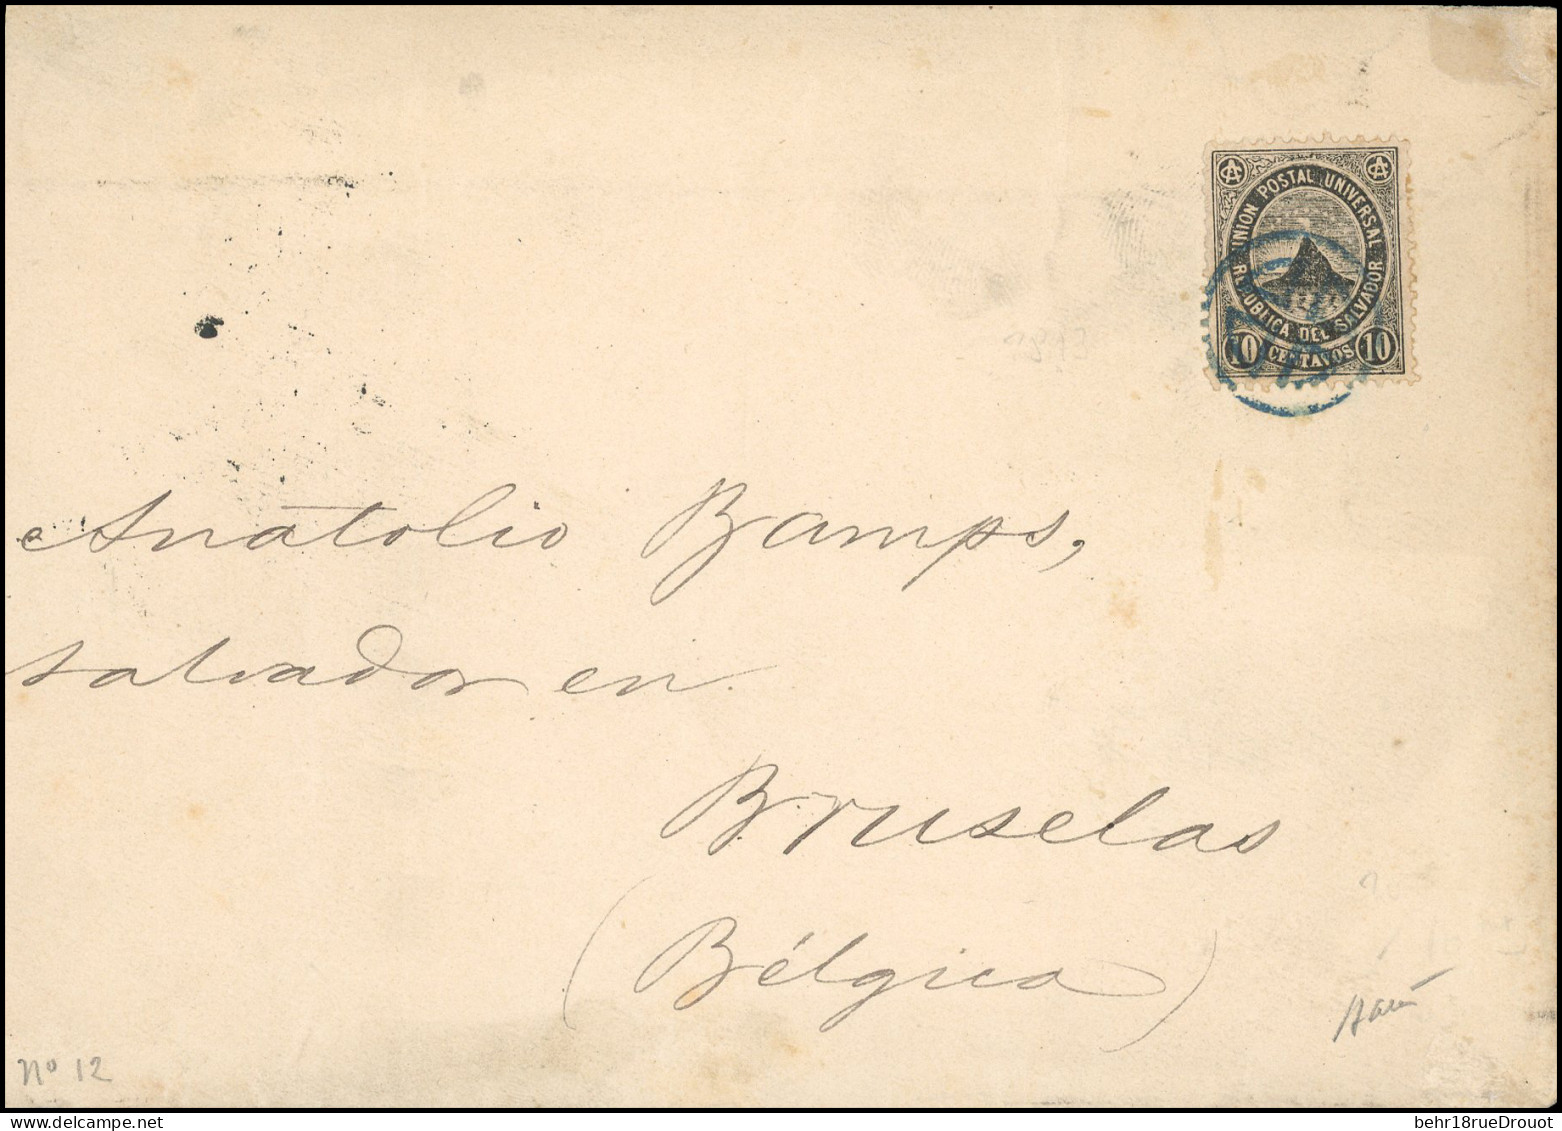 UNION POSTAL UNIVERSAL
REPUBLICA DEL SALVADOR
10 CENTAVOS 10
Anatolio Bamps,
Salvador en
Bruselas
(Bélgica)
nº 12
behr18rueDrouot